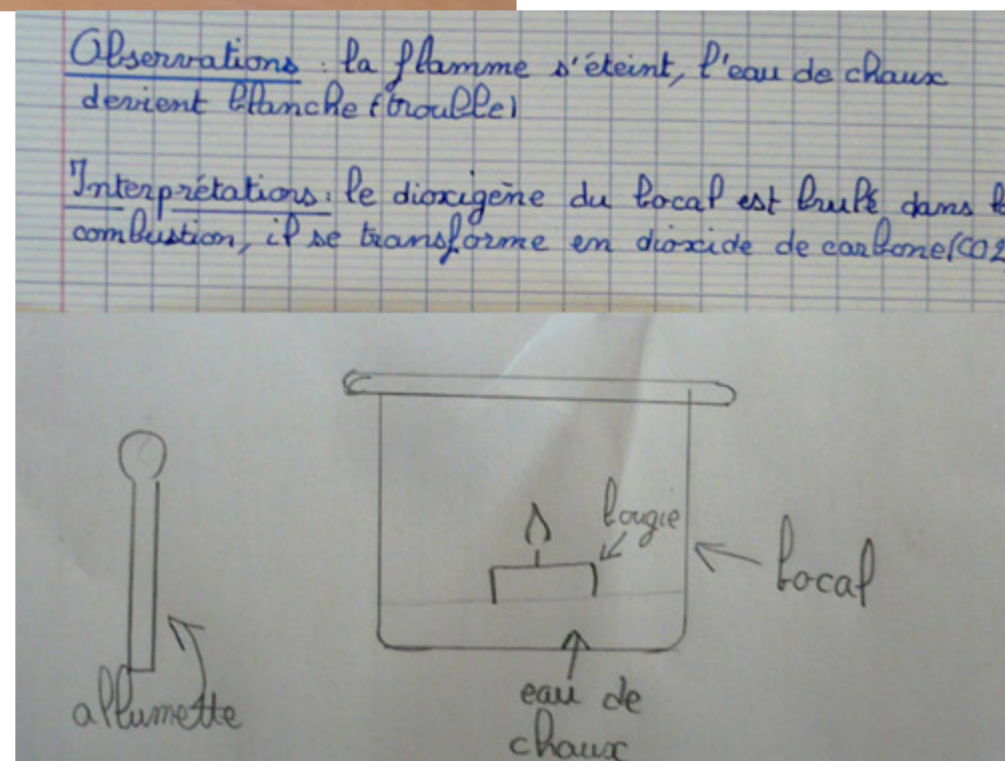 Observations : la flamme s'éteint, l'eau de chaux
devient blanche (trouble)
Interprétations : le dioxigène du bocal est brulé dans
combustion, il se transforme en dioxide de carbone (CO2
bougie
bocal
allumette
eau de
chaux